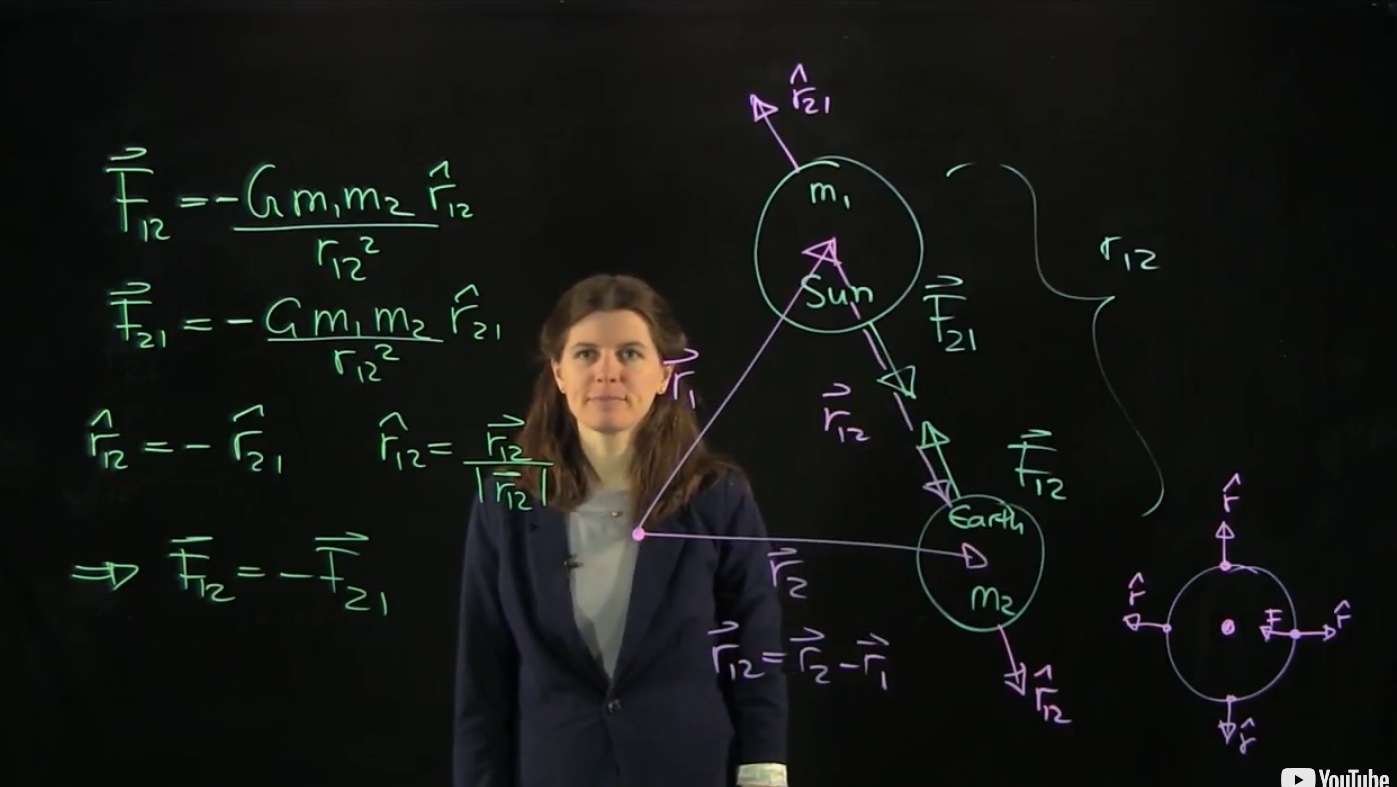 F⃗₁₂ = - G m₁ m₂ / r₁₂² r̂₁₂
F⃗₂₁ = - G m₁ m₂ / r₁₂² r̂₂₁
r̂₁₂ = - r̂₂₁
r̂₁₂ = r⃗₁₂ / |r⃗₁₂|
⇒ F⃗₁₂ = - F⃗₂₁
r̂₂₁
m₁
Sun
F⃗₂₁
r₁₂
r⃗₁
r⃗₁₂
F⃗₁₂
Earth
m₂
r⃗₂
r⃗₁₂ = r⃗₂ - r⃗₁
r̂₁₂
r̂
r̂
F
r̂
r̂
YouTube